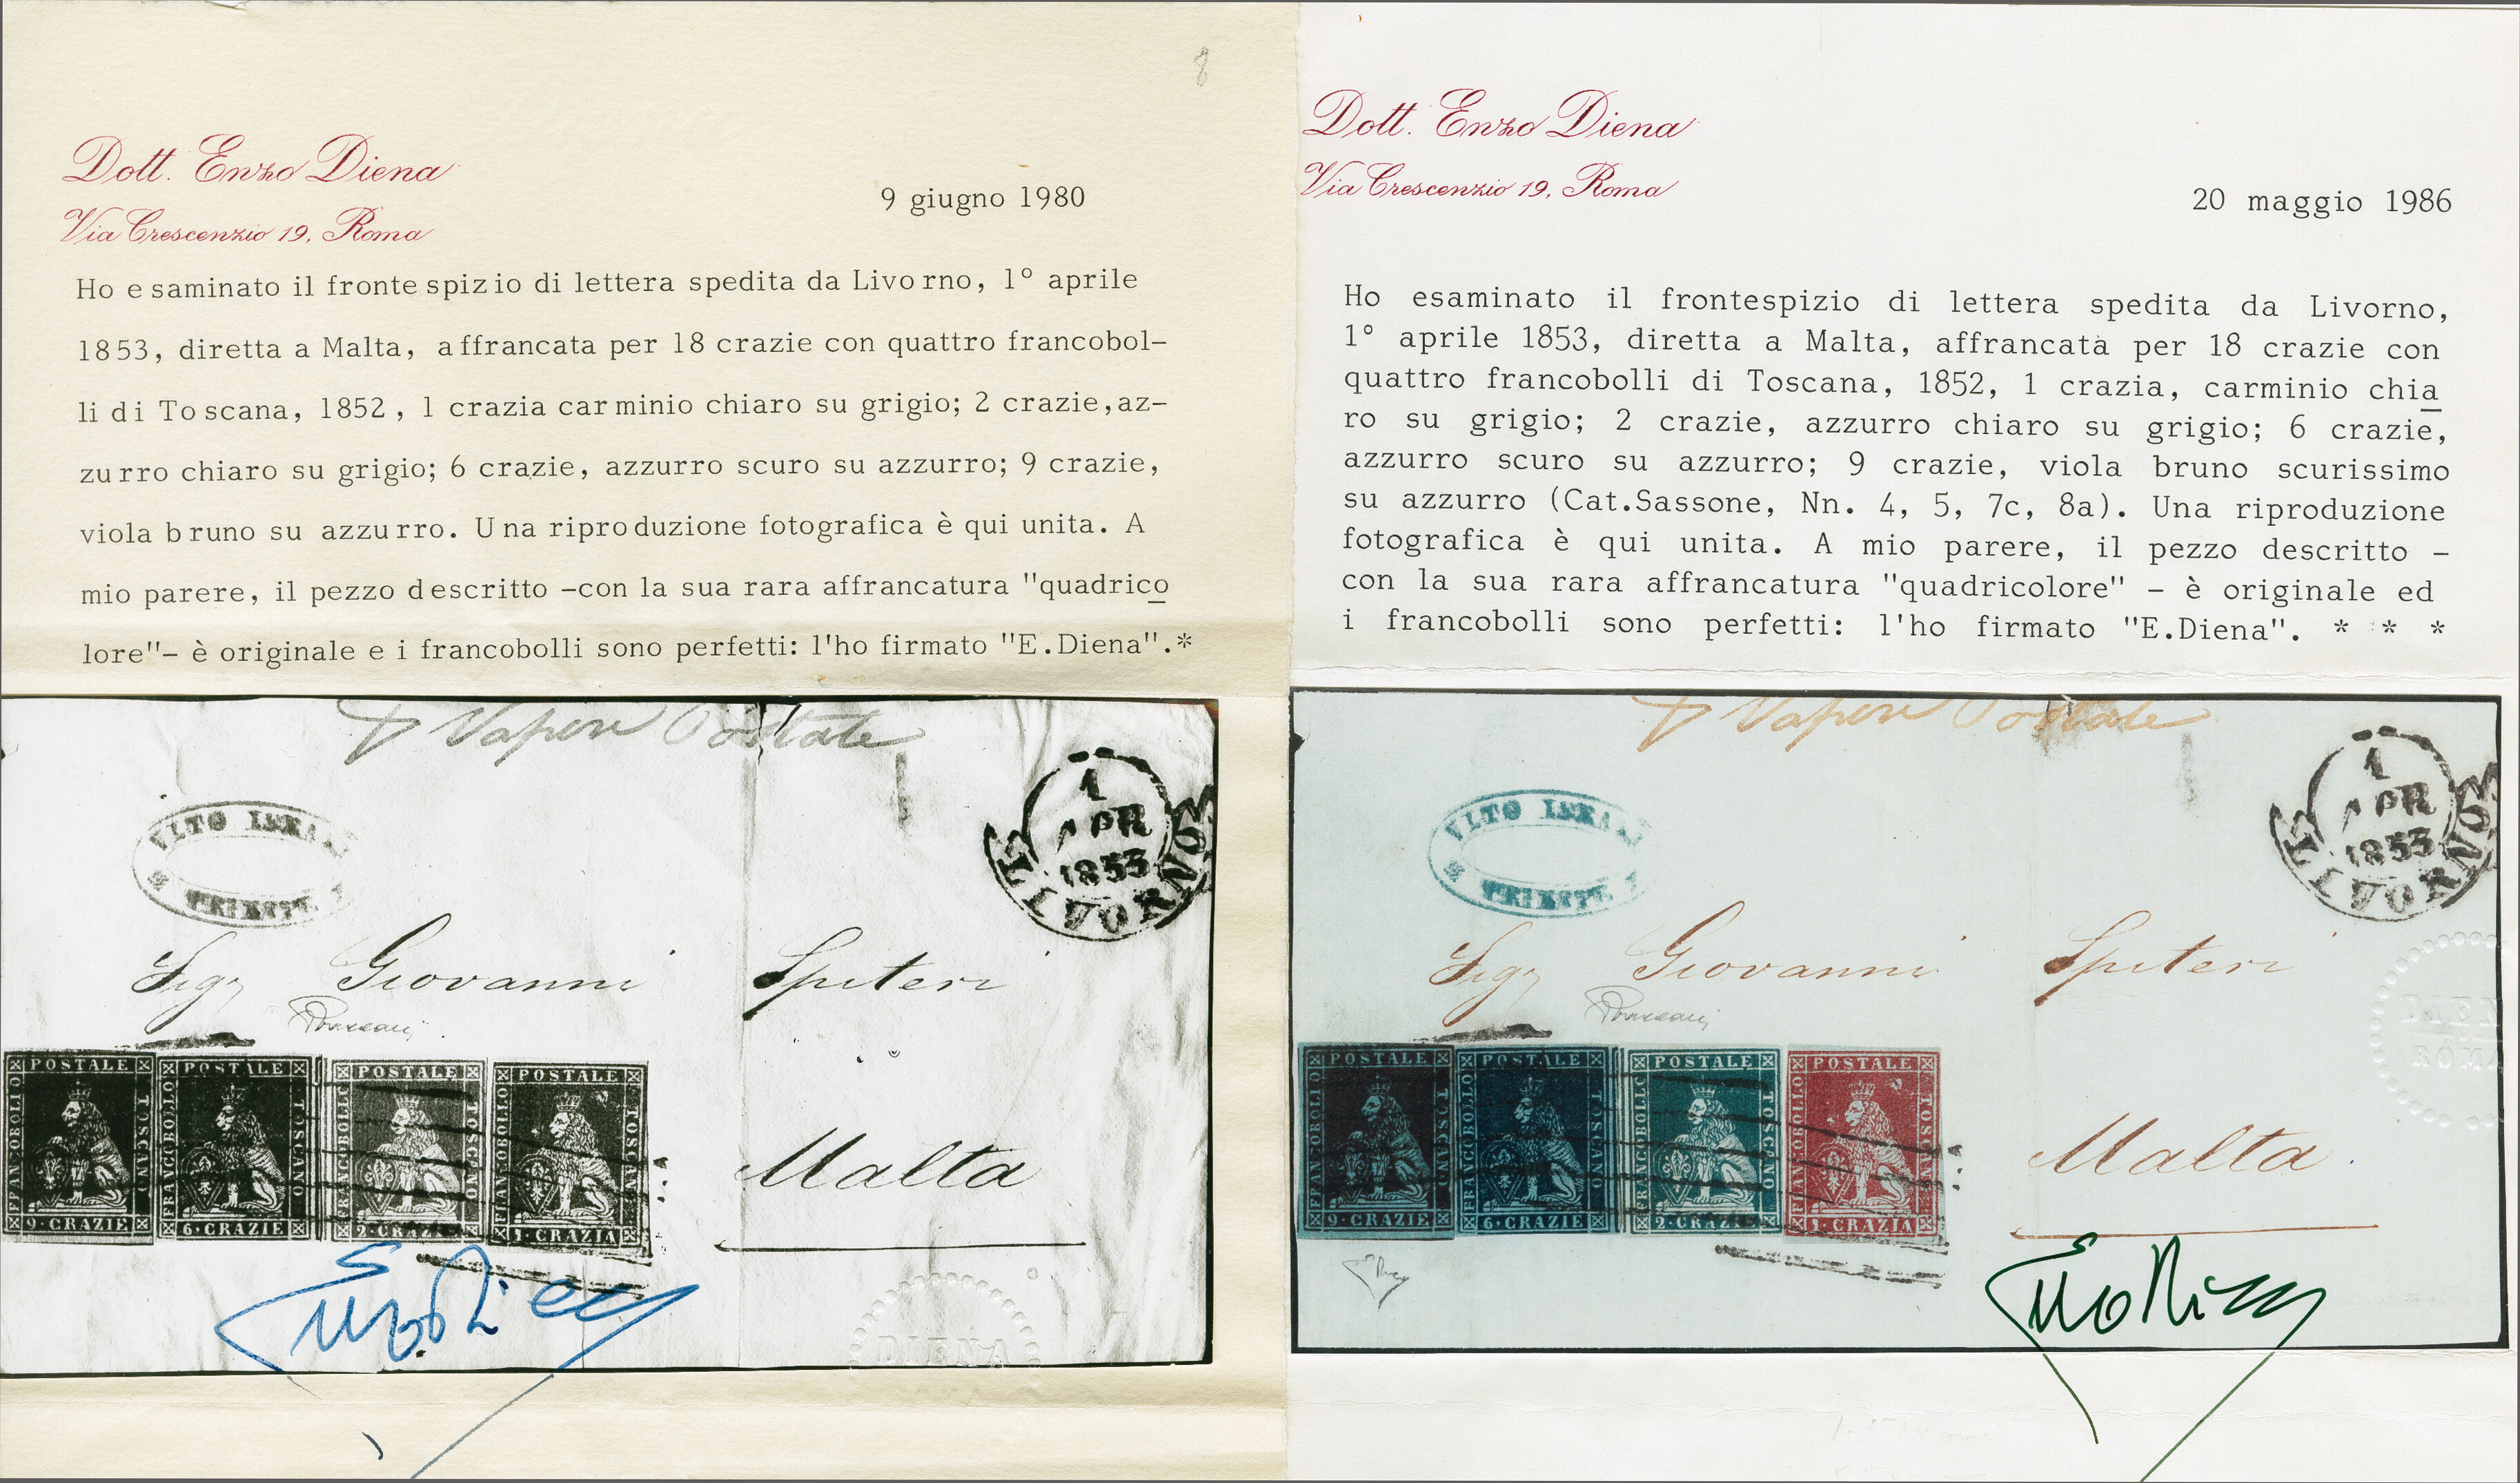 8
Dott. Enzo Diena
Via Crescenzio 19, Roma
9 giugno 1980
Ho esaminato il frontespizio di lettera spedita da Livorno, 1° aprile
1853, diretta a Malta, affrancata per 18 crazie con quattro francobol-
li di Toscana, 1852, 1 crazia carminio chiaro su grigio; 2 crazie, az-
zurro chiaro su grigio; 6 crazie, azzurro scuro su azzurro; 9 crazie,
viola bruno su azzurro. Una riproduzione fotografica è qui unita. A
mio parere, il pezzo descritto -con la sua rara affrancatura "quadrico
lore"- è originale e i francobolli sono perfetti: l'ho firmato "E.Diena".*
Vapore Postale
1
APR
1853
LIVORNO
Sigr Giovanni Spiteri
Malta
POSTALE
FRANCOBOLLO
TOSCANO
9·CRAZIE
POSTALE
FRANCOBOLLO
TOSCANO
6·CRAZIE
POSTALE
FRANCOBOLLO
TOSCANO
2·CRAZIE
POSTALE
FRANCOBOLLO
TOSCANO
1·CRAZIA
DIENA
Dott. Enzo Diena
Via Crescenzio 19, Roma
20 maggio 1986
Ho esaminato il frontespizio di lettera spedita da Livorno,
1° aprile 1853, diretta a Malta, affrancata per 18 crazie con
quattro francobolli di Toscana, 1852, 1 crazia, carminio chia
ro su grigio; 2 crazie, azzurro chiaro su grigio; 6 crazie,
azzurro scuro su azzurro; 9 crazie, viola bruno scurissimo
su azzurro (Cat.Sassone, Nn. 4, 5, 7c, 8a). Una riproduzione
fotografica è qui unita. A mio parere, il pezzo descritto -
con la sua rara affrancatura "quadricolore" - è originale ed
i francobolli sono perfetti: l'ho firmato "E.Diena". * * *
Vapore Postale
1
APR
1853
LIVORNO
Sigr Giovanni Spiteri
Malta
POSTALE
FRANCOBOLLO
TOSCANO
9·CRAZIE
POSTALE
FRANCOBOLLO
TOSCANO
6·CRAZIE
POSTALE
FRANCOBOLLO
TOSCANO
2·CRAZIE
POSTALE
FRANCOBOLLO
TOSCANO
1·CRAZIA